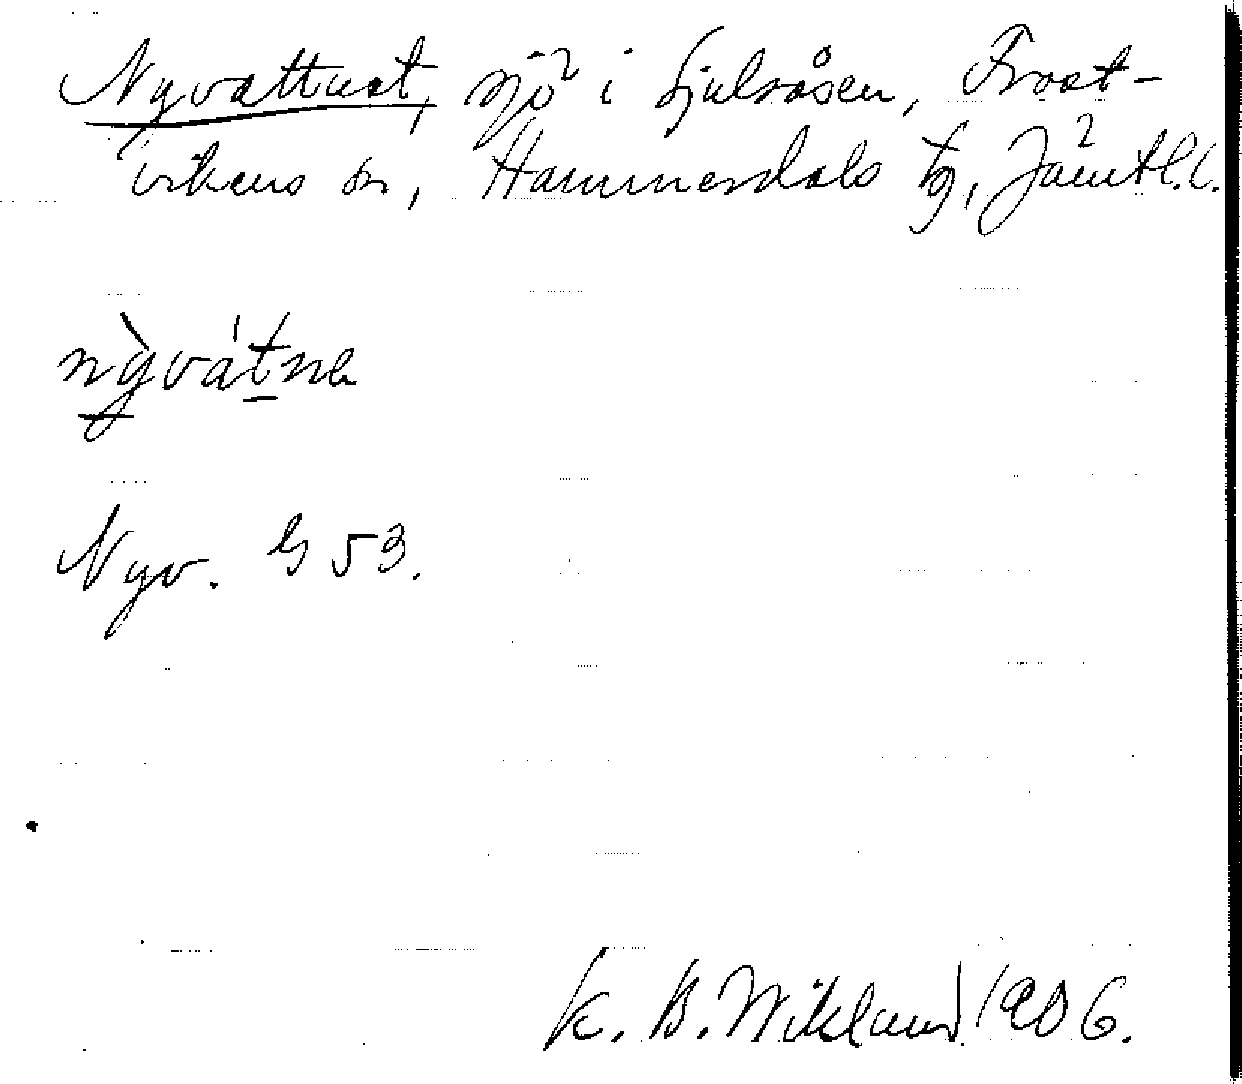 Nyvattnet, sjö i Hjulsåsen, Frost-
vikens sn, Hammerdals tg, Jämtl. l.
nỳvátne
Nyv. G 53.
K. B. Wiklund 1906.